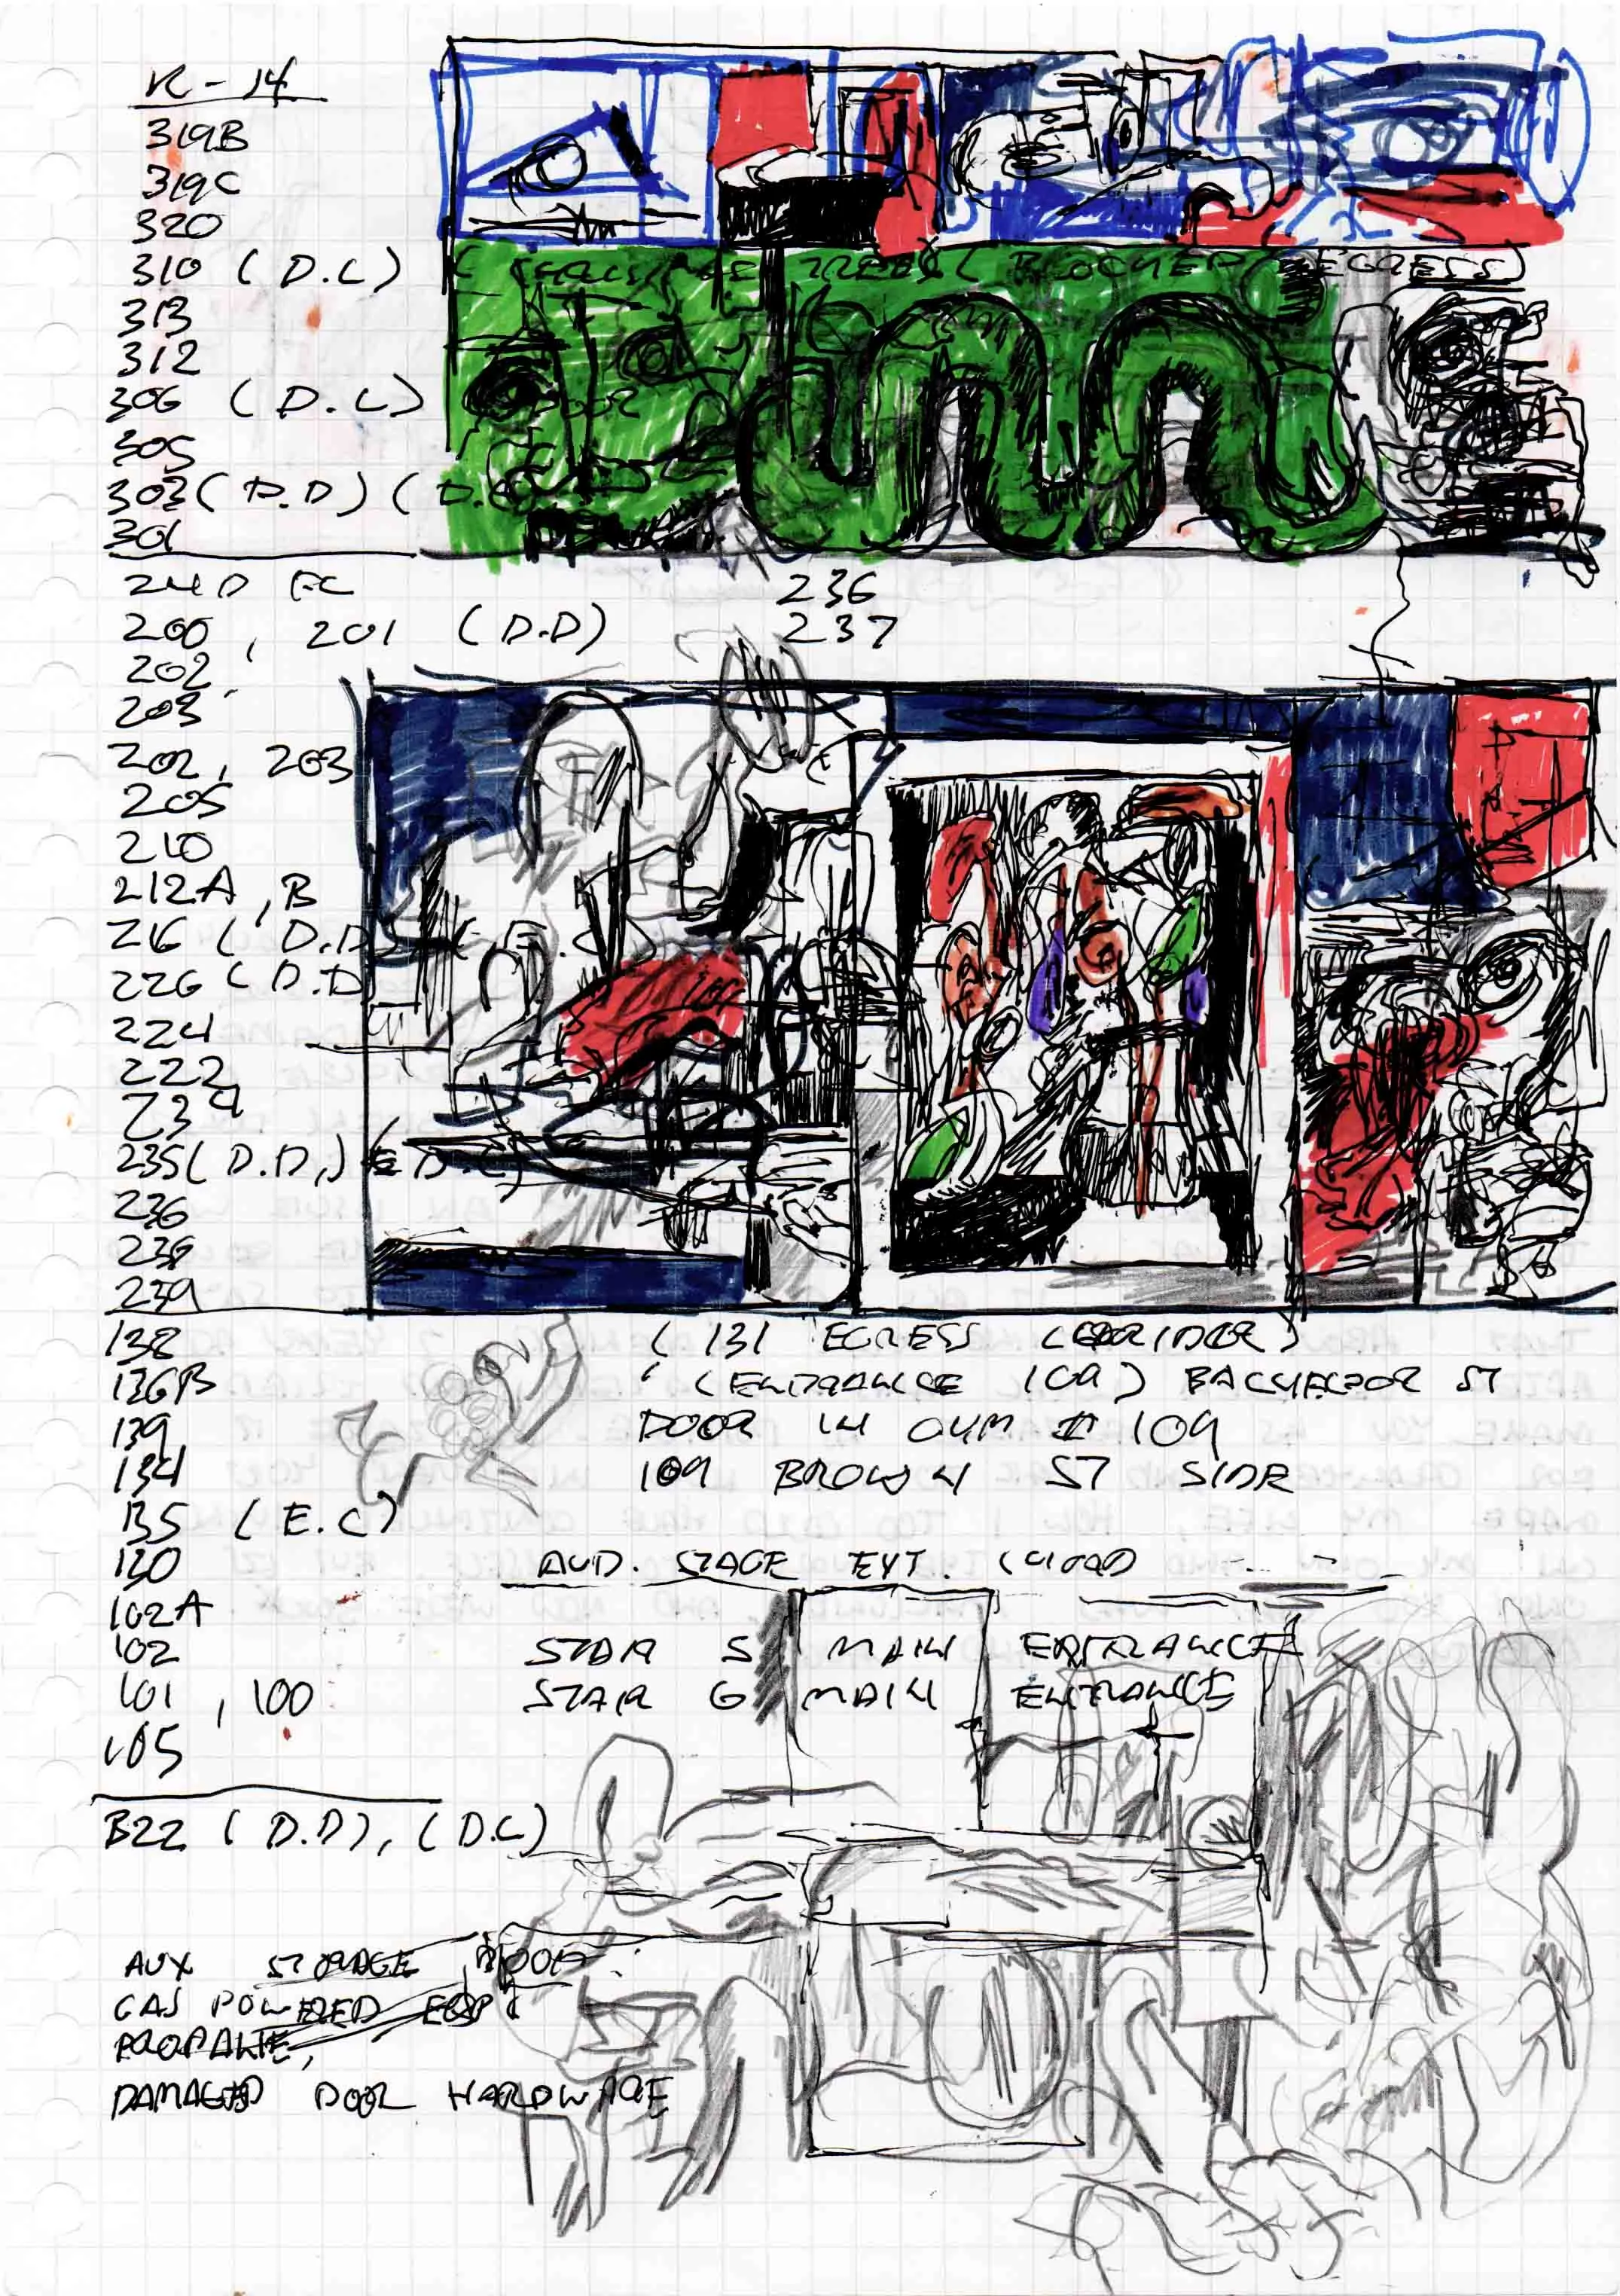 K-14
319B
319C
320
310 (D.C) TREES (BLOCKED EGRESS)
313
312
306 (D.C) DOOR
305
303 (D.D) (D.C
301
240 EC 236
200, 201 (D.D) 237
202
203
202, 203
205
210
212A, B
216 (D.D)
226 (D.D
224
222
234
235 (D.D,) D.C)
236
238
239
138 (131 EGRESS CORRIDOR)
136B (ENTRANCE 109) BACHELOR ST
139 DOOR IN GYM # 109
134 109 BROWN ST SIDE
135 (E.C)
130 AUD. STAGE EXT.
102A
102 STAIR 5 MAIN ENTRANCE
101, 100 STAIR 6 MAIN ENTRANCE
105
B22 (D.D), (D.C)
AUX STORAGE ROOM
GAS POWERED EQP
PROPANE,
DAMAGED DOOR HARDWARE